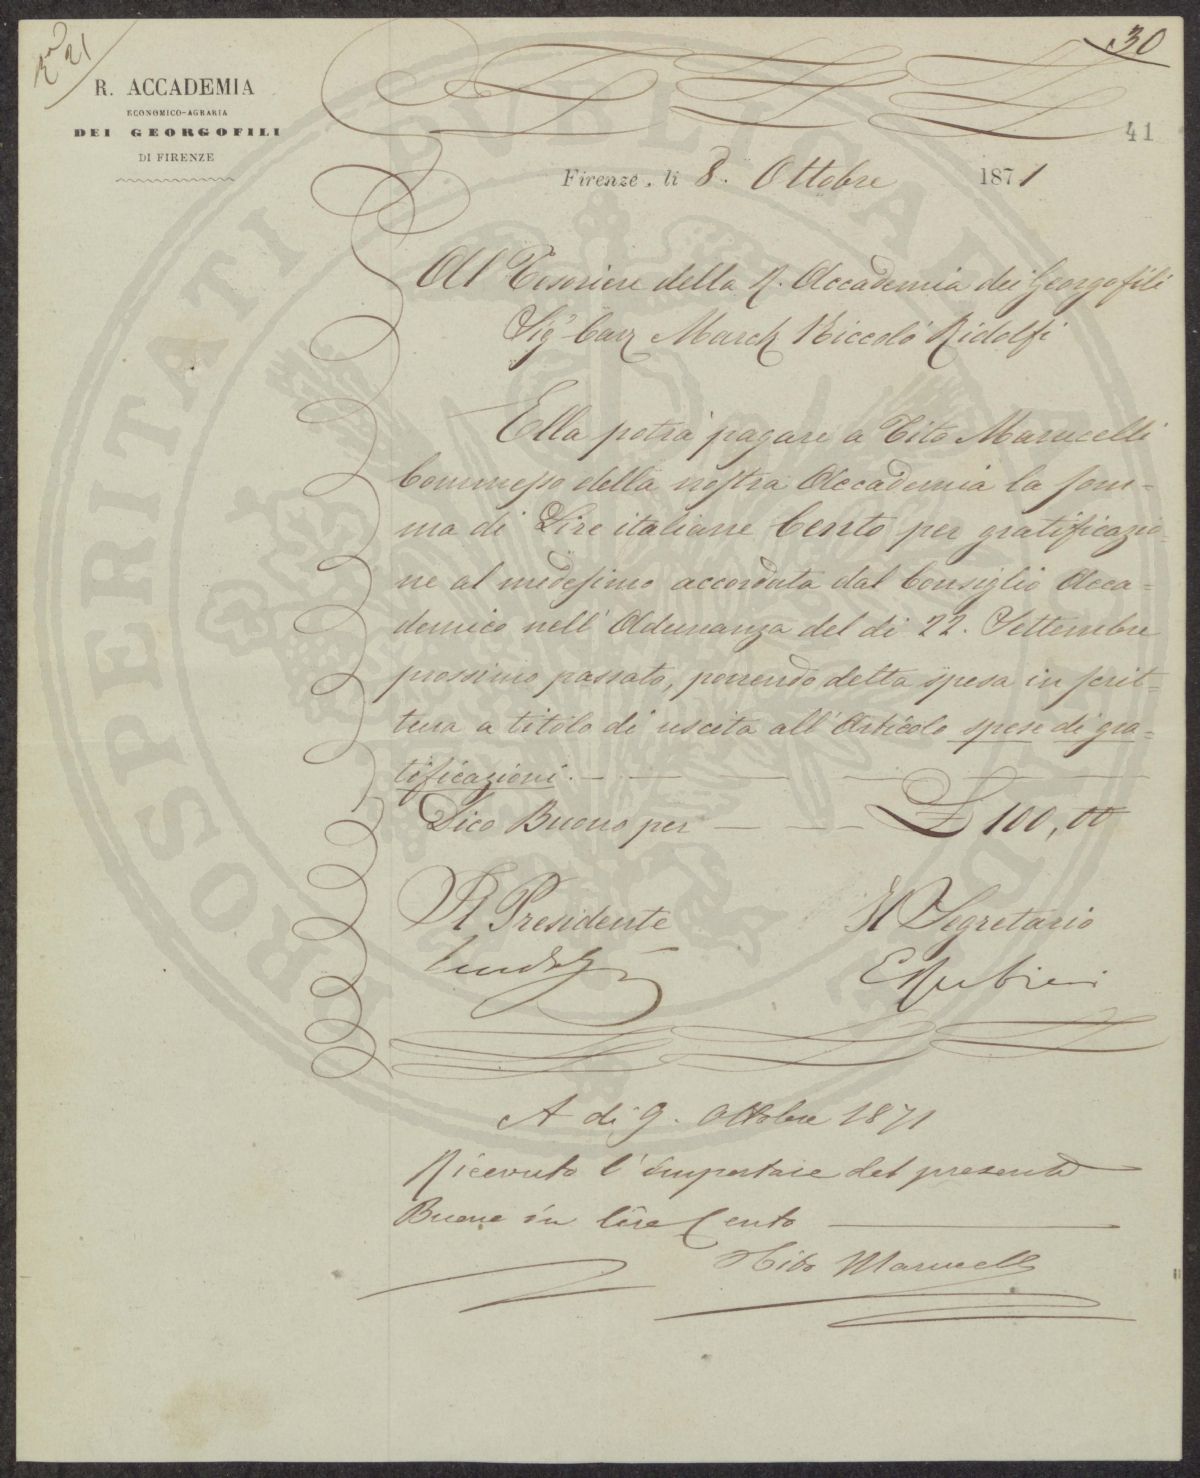 30
N° 21
R. ACCADEMIA
ECONOMICO-AGRARIA
DEI GEORGOFILI
DI FIRENZE
41
Firenze, li 8. Ottobre 1871
Al Tesoriere della R. Accademia dei Georgofili
Sig.r Cav. March. Niccolò Ridolfi
Ella potrà pagare a Tito Marucelli
Commesso della nostra Accademia la som-
ma di Lire italiane Cento per gratificazio-
ne al medesimo accordata dal Consiglio Acca-
demico nell'Adunanza del dì 22. Settembre
prossimo passato, ponendo detta spesa in scrit-
tura a titolo di uscita all'Articolo spese di gra-
tificazioni.
Dico Buono per £ 100,00
Il Presidente Il Segretario
A dì 9. Ottobre 1871
Ricevuto l'importare del presente
Buono in lire Cento
Tito Marucelli
PROSPERITATI PUBLICAE AUGENDAE